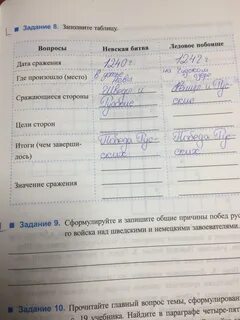 Задание 8. Заполните таблицу.
Вопросы Невская битва Ледовое побоище
Дата сражения 1240г 1242г
Где произошло (место) В устье Невы на Чудском озере
Сражающиеся стороны Шведы и Русские Немцы и Русские
Цели сторон
Итоги (чем завершилось) Победа Русских Победа Русских
Значение сражения
Задание 9. Сформулируйте и запишите общие причины побед рус-
го войска над шведскими и немецкими завоевателями.
Задание 10. Прочитайте главный вопрос темы, сформулирован
19 учебника. Найдите в параграфе четыре-пят